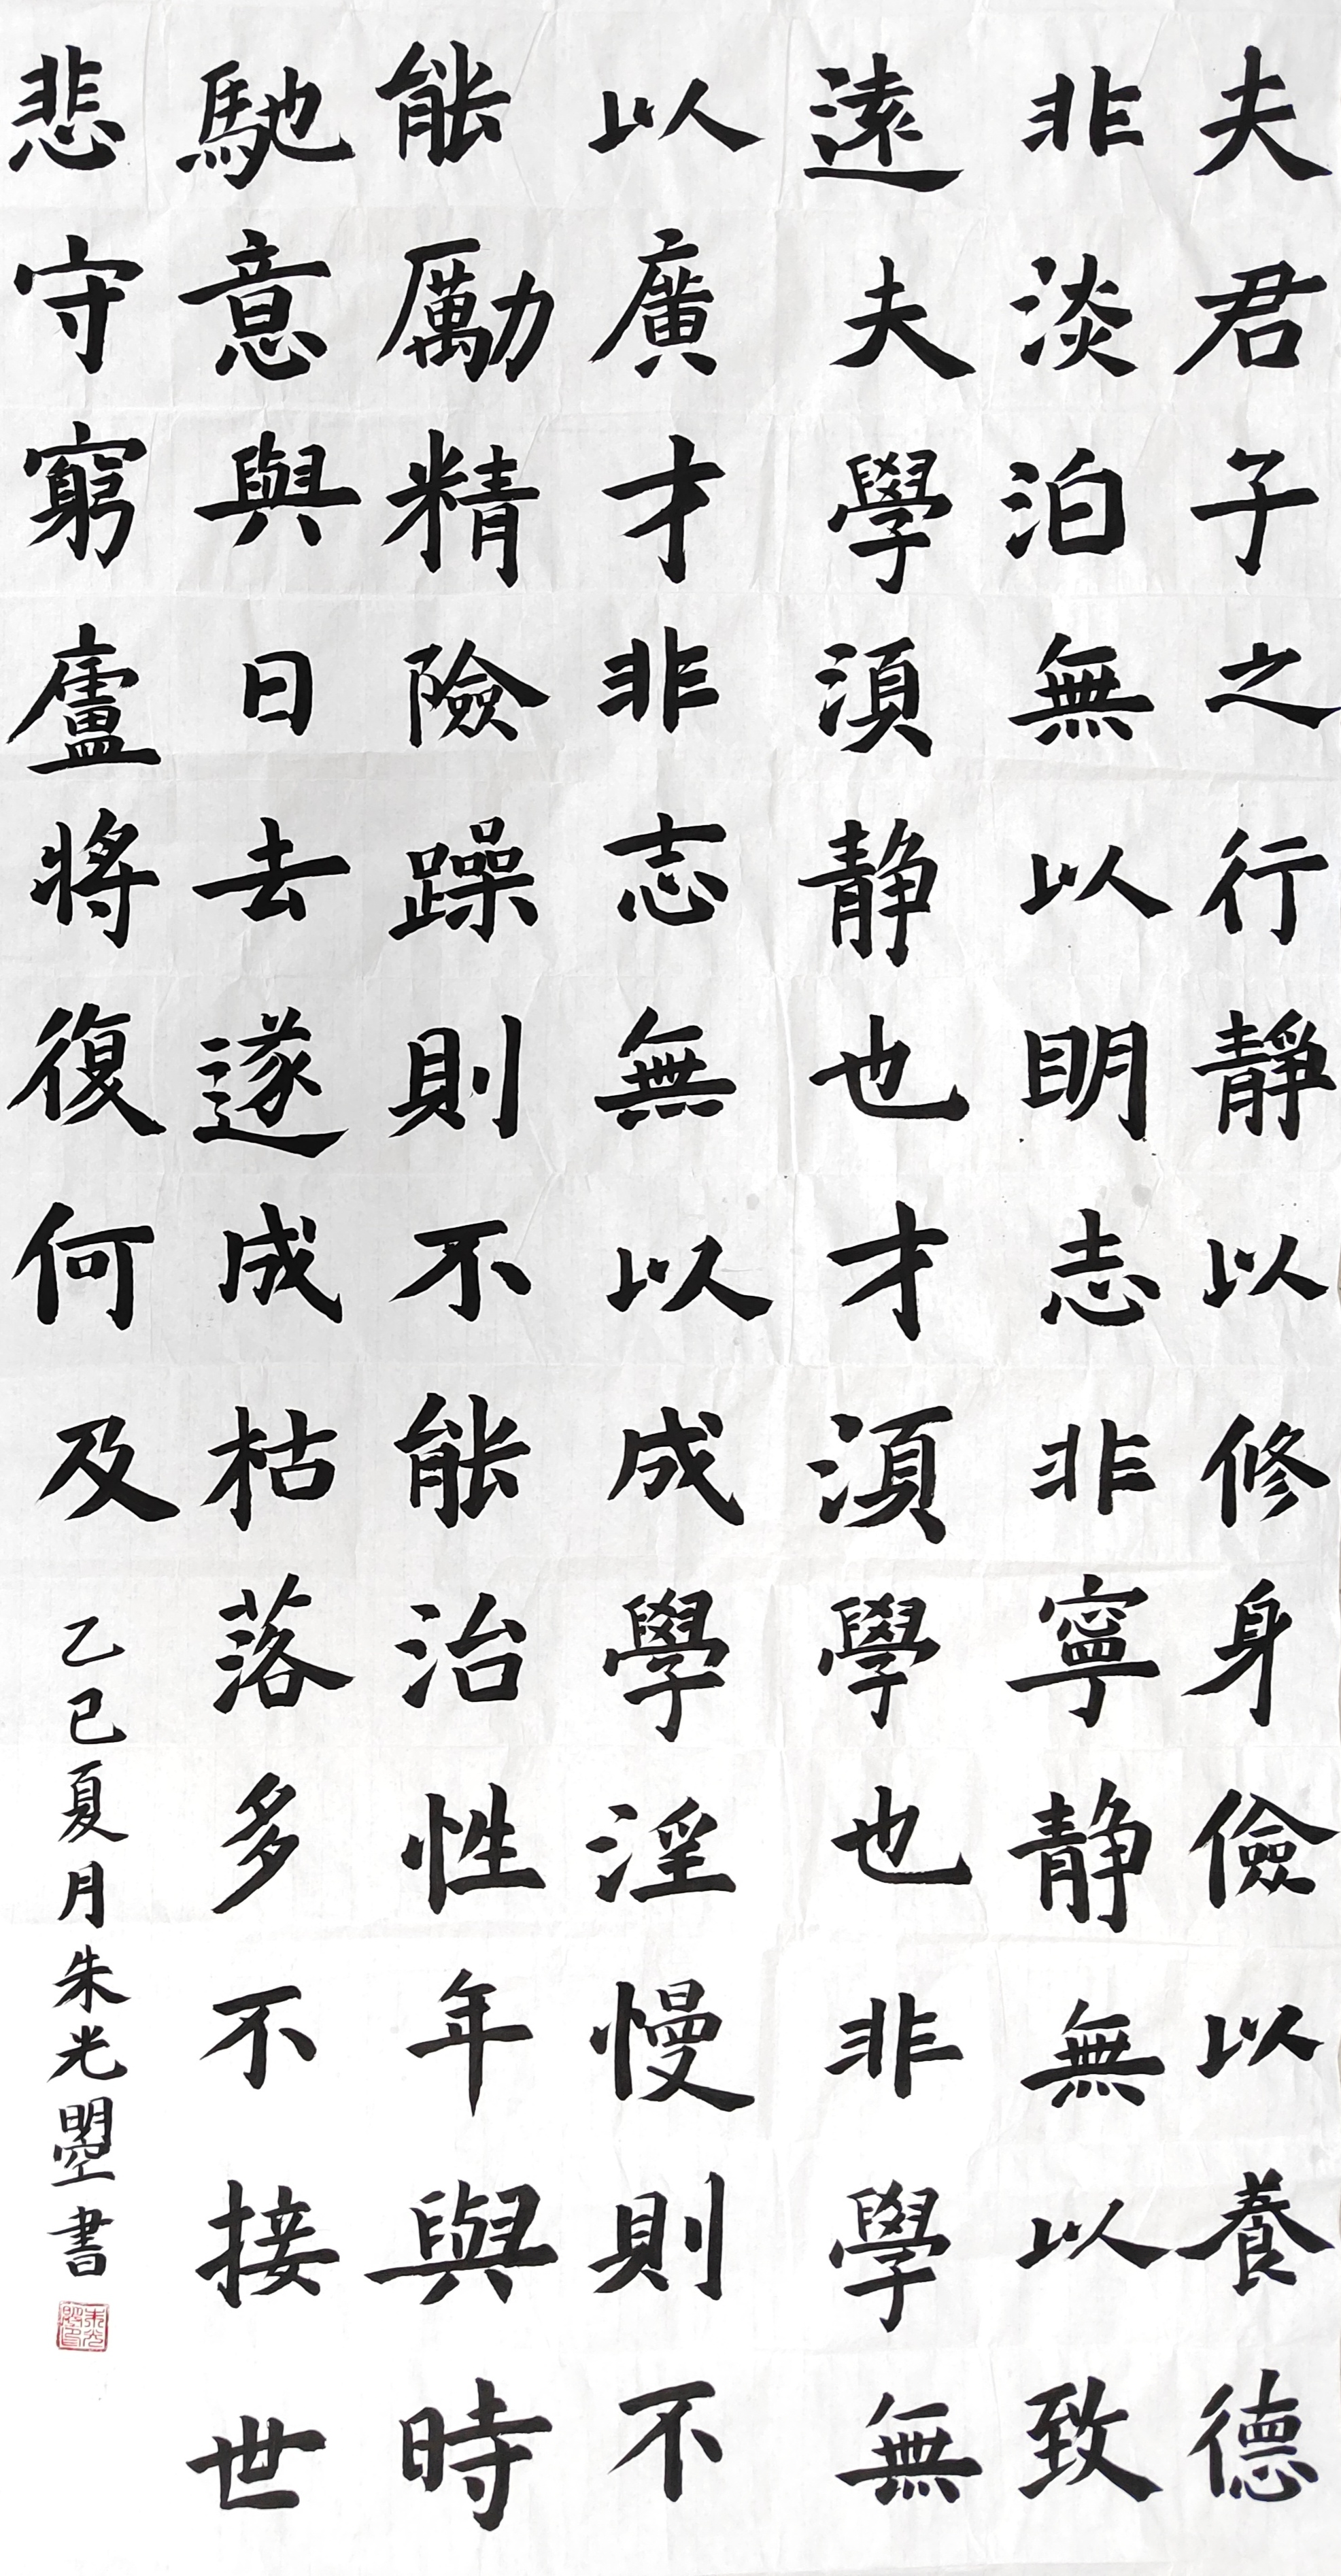 夫君子之行靜以修身儉以養德
非淡泊無以明志非寧静無以致
遠夫學須静也才須學也非學無
以廣才非志無以成學淫慢則不
能勵精險躁則不能治性年與時
馳意與日去遂成枯落多不接世
悲守窮廬將復何及
乙巳夏月朱光曌書